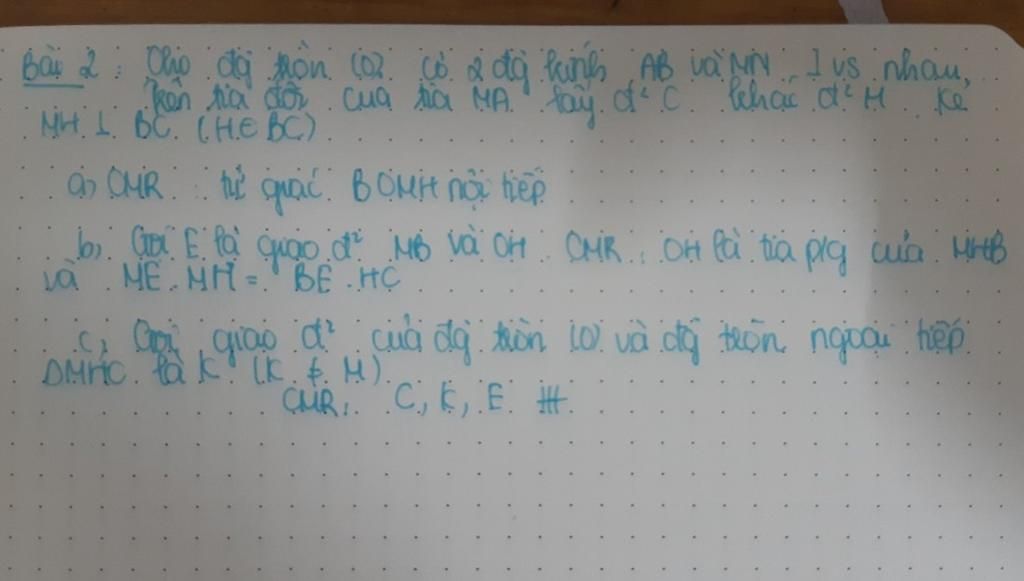 Bài 2: Cho đg tròn (O) có 2 đg kính AB và MN ⊥ vs nhau,
trên tia đối của tia MA lấy đ² C khác đ² M. Kẻ
MH ⊥ BC (H∈BC)
a, CMR tứ giác BOMH nội tiếp
b, Gọi E là giao đ² MB và OH CMR: OH là tia p/g của MHB
và ME.MH = BE.HC
c, Gọi giao đ² của đg tròn (O) và đg tròn ngoại tiếp
ΔMHC là K (K ≠ M)
CMR, C, K, E